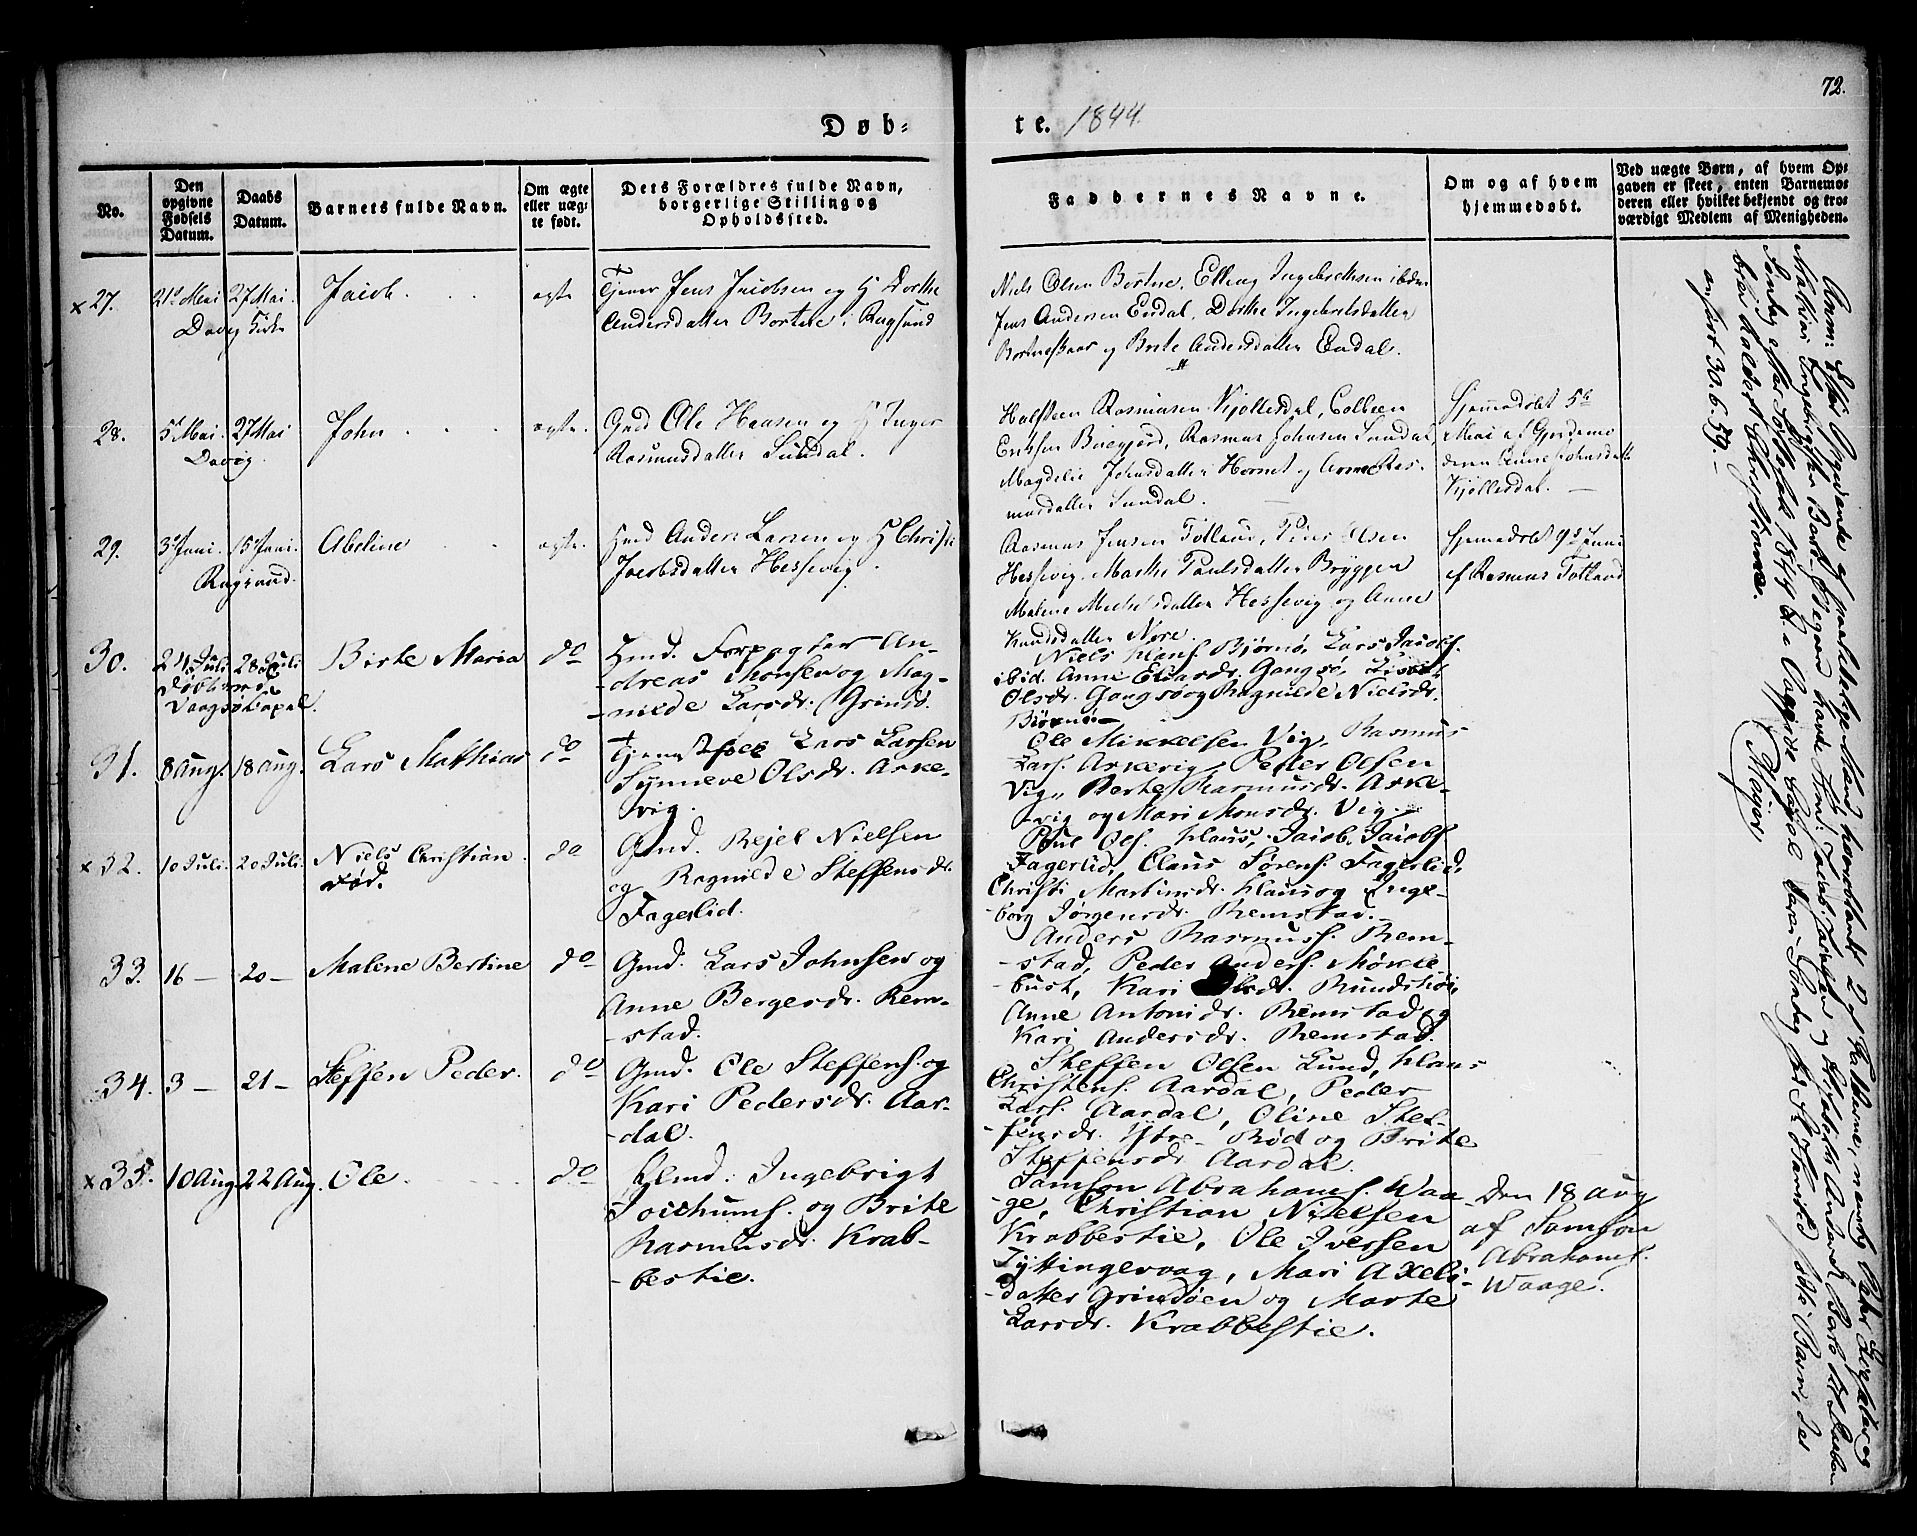 72.
Døb-
te. 1844.
No.
Den opgivne Fødsels Datum.
Daabs Datum.
Barnets fulde Navn.
Om ægte eller uægte født.
Dets Forældres fulde Navn, borgerlige Stilling og Opholdssted.
Faddernes Navne.
Om og af hvem hjemmedøbt.
Ved uægte Børn, af hvem Opgaven er skeet, enten Barnemoderen eller hvilket bekjendt og troværdigt Medlem af Menigheden.
x 27.
21de Mai
27 Mai
Davig Kirke
Jacob.
ægte
Tjener Jens Jacobsen og H Dorthe
Andersdatter Bortne i Rugsund
Niels Olsen Bortne, Elling Ingebrethsen ibdm
Jens Andersen Endal, Dorthe Ingebretsdatter
Bortneskaar og Brite Andersdatter Endal.
28.
5t Mai
27 Mai
Davig.
John
ægte.
Gmd Ole Hansen og H Inger
Rasmusdatter Sundal.
Halsteen Rasmusen Kjøllesdal, Colbeen
Ericksen Biegjørd, Rasmus Johnsen Sundal,
Magdelie Johnsdatter Hornet og Anne Ras-
musdatter Sundal.
Hjemmedøbt 5te
Mai af Gjordemo
deren Anne Johnsdatt
Kjøllesdal.
29.
3de Juni.
15 Juni.
Rugsund.
Abeline
ægte.
Hmd Anders Larsen og H Christi
Jacobsdatter Hessevig.
Rasmus Jensen Totland, Peder Olsen
Hessevig. Marthe Paulsdatter Bryggen
Malene Michelsdatter Hessevig og Anne
Knudsdatter Nore.
Hjemmedøbt 9de Juni
af Rasmus Totland
30.
24 Juli
28 Juli
Døbt ved
Vaagsø Capel.
Birte Maria
do
Hmd. Forpagter An-
dreas Monsen og Mag-
nilde Larsdr. Grinds.
Niels Klaus. Bjørnø, Lars Jacobs.
ibid. Anne Eliasdr. Gangsø, Lisbet
Olsdr. Gangsø og Ragnilde Nielsdr.
Bjørnø
31.
8 Aug.
18 Aug.
Lars Mathias
do
Tjenestfolk Lars Larsen
Synneve Olsdr. Arke-
vig.
Ole Mikkelsen Vig, Rasmus
Lars. Arkevig, Peder Olsen
Vig, Berte Rasmusdr. Arke-
vig og Mari Monsdr. Vig.
x 32.
10 Juli.
20 Juli.
Niels Christian.
Død.
do
Gmd. Rejel Nielsen
og Ragnilde Steffensdr.
Fagerlid.
Poul Ols. Klaus, Jacob Jacobs.
Fagerlid, Claus Sørens. Fagerlid,
Christi Martinusdr. Klaus og Inge-
borg Jørgensdr. Remstad.
33.
16 -
20 -
Malene Bertine
do
Gmd. Lars Johnsen og
Anne Bergersdr. Rem-
stad.
Anders Rasmuss. Rem-
stad, Peder Anders. Møkle
bust, Kari Olsdr. Rundstøi,
Anne Antonidr. Remstad og
Kari Andersdr. Remstad.
34.
3 -
21 -
Steffen Peder.
do
Gmd. Ole Steffens. og
Kari Pedersdr. Aar-
dal.
Steffen Olsen Lund, Klaus
Christens. Aardal, Peder
Lars. Aardal, Oline Stef-
fensdr. Ytre-Rød og Brite
Steffensdr. Aardal.
x 35.
10 Aug
22 Aug.
Ole
do
Hmd. Ingebrigt
Joichums. og Brite
Rasmusdr. Krab-
bestie.
Samson Abrahams. Waa-
ge, Christian Nielsen
Krabbestie, Ole Iversen
Tyttingevaag, Mari Axels-
datter Grindøen og Marte
Larsdr. Krabbestie.
Den 18 Aug
af Samson
Abrahams.
Waage.
anført 30.6.59.